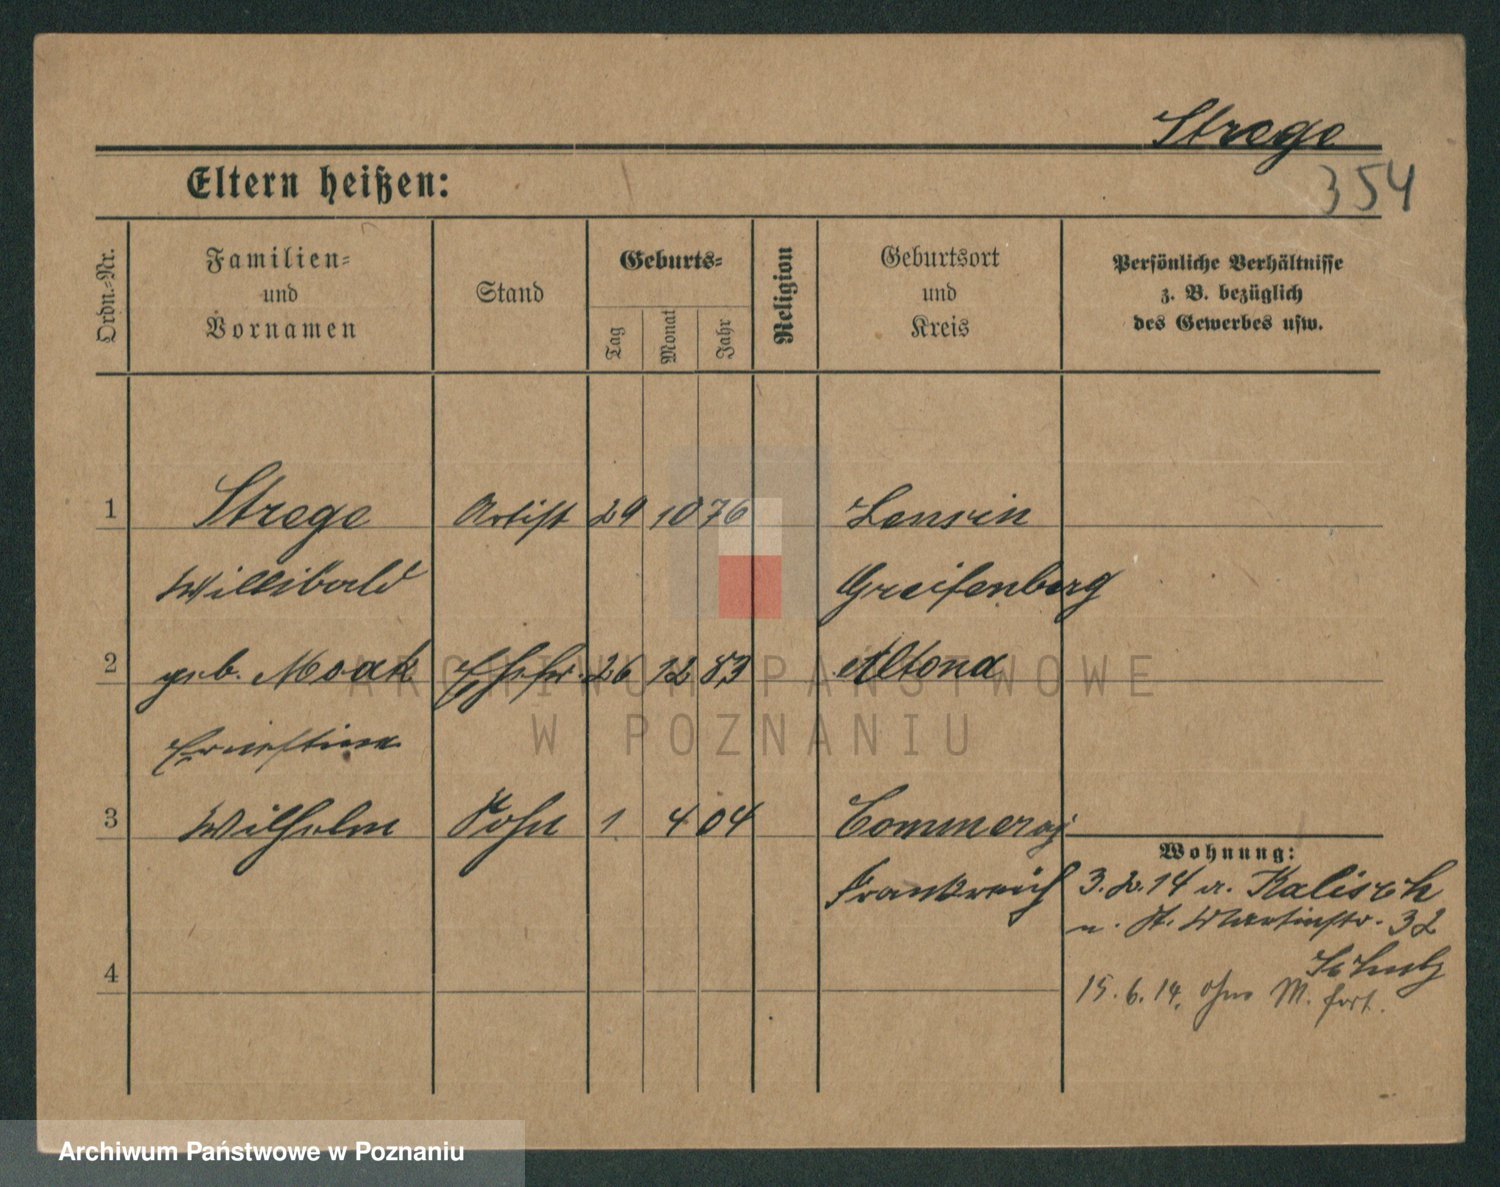 Strege
354
Eltern heißen:
Ordn.-Nr.
Familien-
und
Vornamen
Stand
Geburts-
Tag
Monat
Jahr
Religion
Geburtsort
und
Kreis
Persönliche Verhältnisse
z. B. bezüglich
des Gewerbes usw.
1 Strege Artist 29 10 76 Zensin
Willibald Greifenberg
2 geb. Moak Ehefr. 26 12 83 Altona
Ernestine
3 Wilhelm Sohn 1 4 04
Frankreich
Wohnung:
3. 2. 14 a. Kalisch
n. St. Martinstr. 32
Schulz
15. 6. 14. ohne M. fort.
4
ARCHIWUM PAŃSTWOWE
W POZNANIU
Archiwum Państwowe w Poznaniu